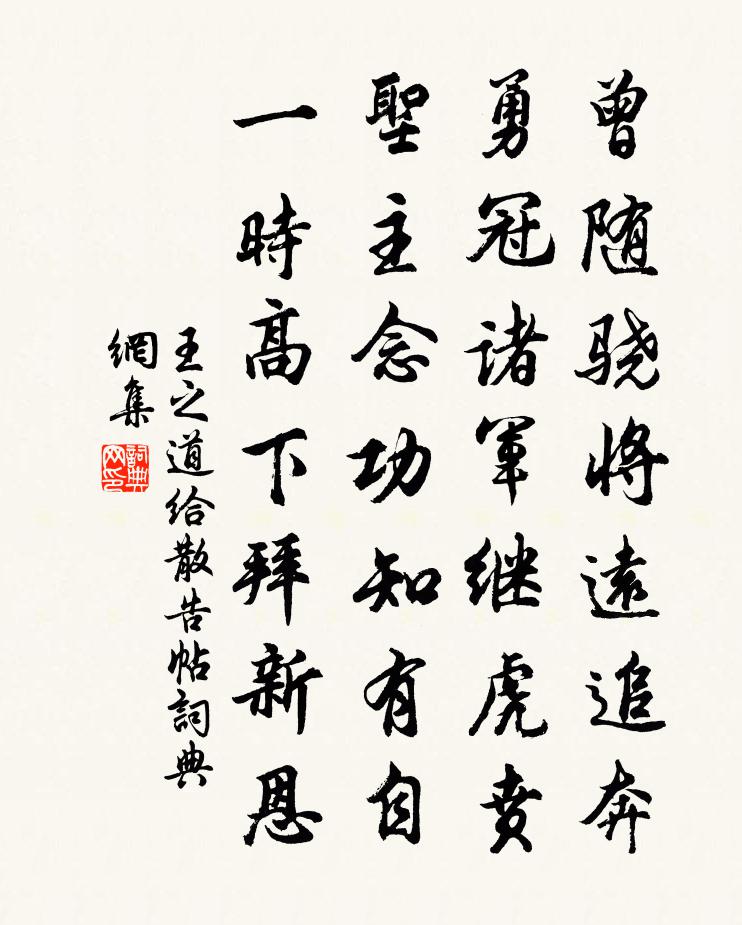 曾随骁将遠追奔
勇冠诸軍继虎賁
聖主念功知有自
一時高下拜新恩
王之道给散告帖詞典
網集
詞典
网印